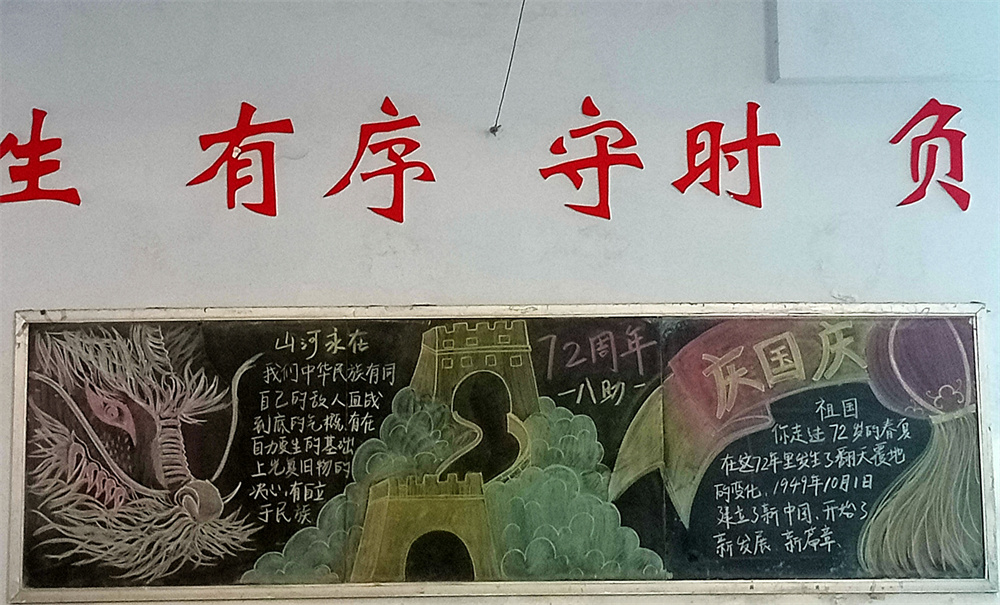 生 有序 守时 负
山河永在
我们中华民族有同
自己的敌人血战
到底的气概,有在
自力更生的基础
上光复旧物的
决心,有自立
于民族
72周年
一八助一
庆国庆
祖国
你走过72岁的春夏
在这72年里发生了翻天覆地
的变化、1949年10月1日
建立了新中国,开始了
新发展 新篇章、